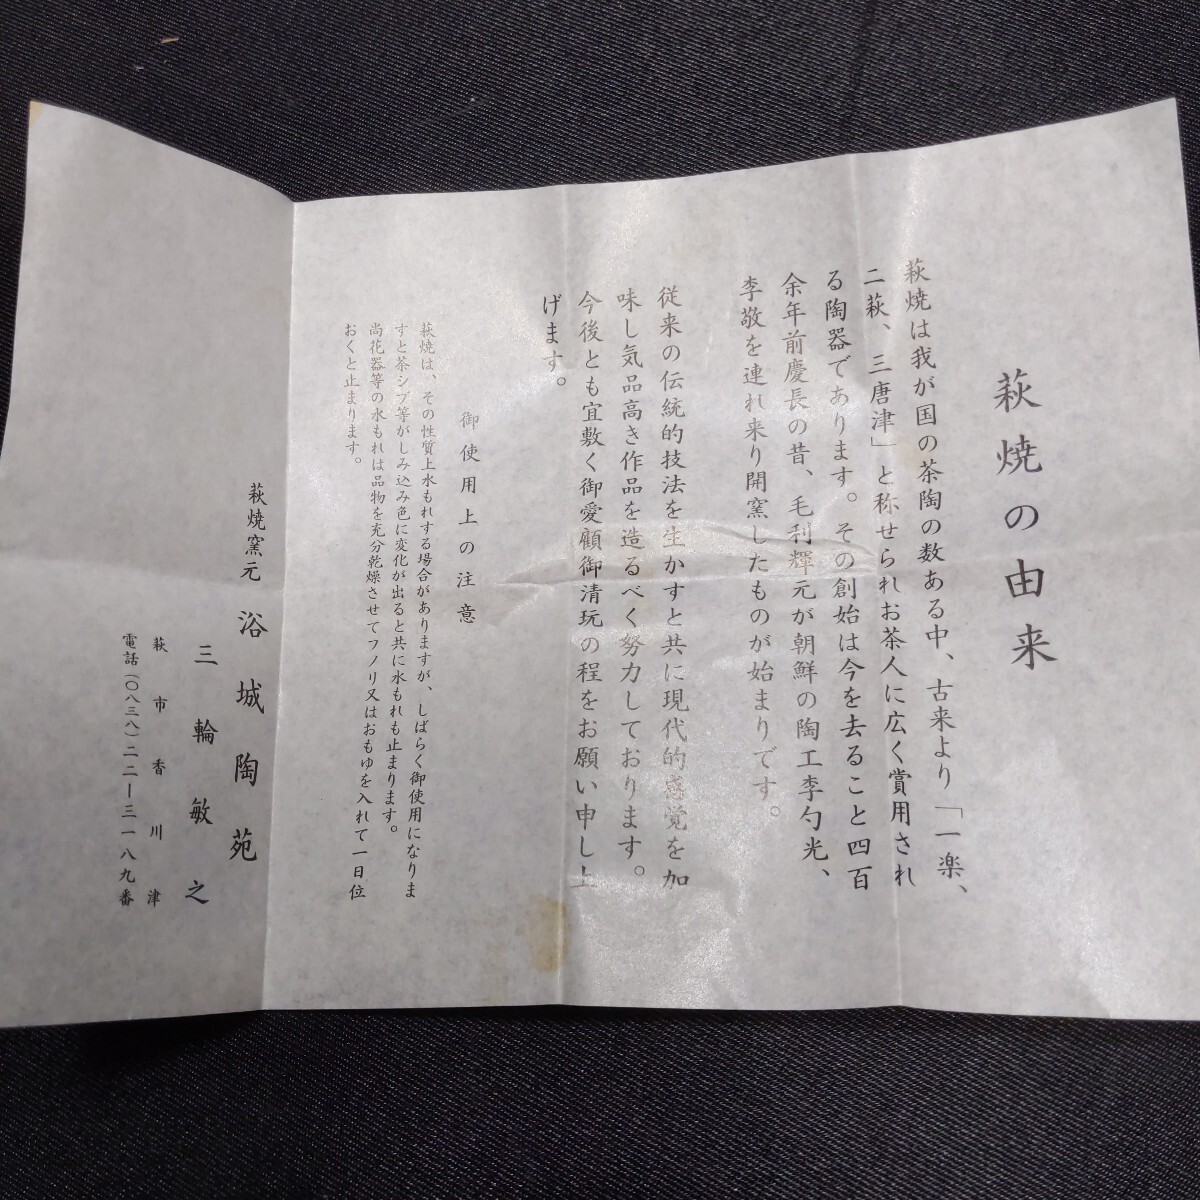 萩焼の由来
萩焼は我が国の茶陶の数ある中、古来より「一楽、
二萩、三唐津」と称せられお茶人に広く賞用され
る陶器であります。その創始は今を去ること四百
余年前慶長の昔、毛利輝元が朝鮮の陶工李勺光、
李敬を連れ来り開窯したものが始まりです。
従来の伝統的技法を生かすと共に現代的感覚を加
味し気品高き作品を造るべく努力しております。
今後とも宜敷く御愛顧御清玩の程をお願い申し上
げます。
御使用上の注意
萩焼は、その性質上水もれする場合がありますが、しばらく御使用になりま
すと茶シブ等がしみ込み色に変化が出ると共に水もれも止まります。
尚花器等の水もれは品物を充分乾燥させてフノリ又はおもゆを入れて一日位
おくと止まります。
萩焼窯元 浴城陶苑
三輪敏之
萩市香川津
電話(〇八三八)二二ー三一八九番